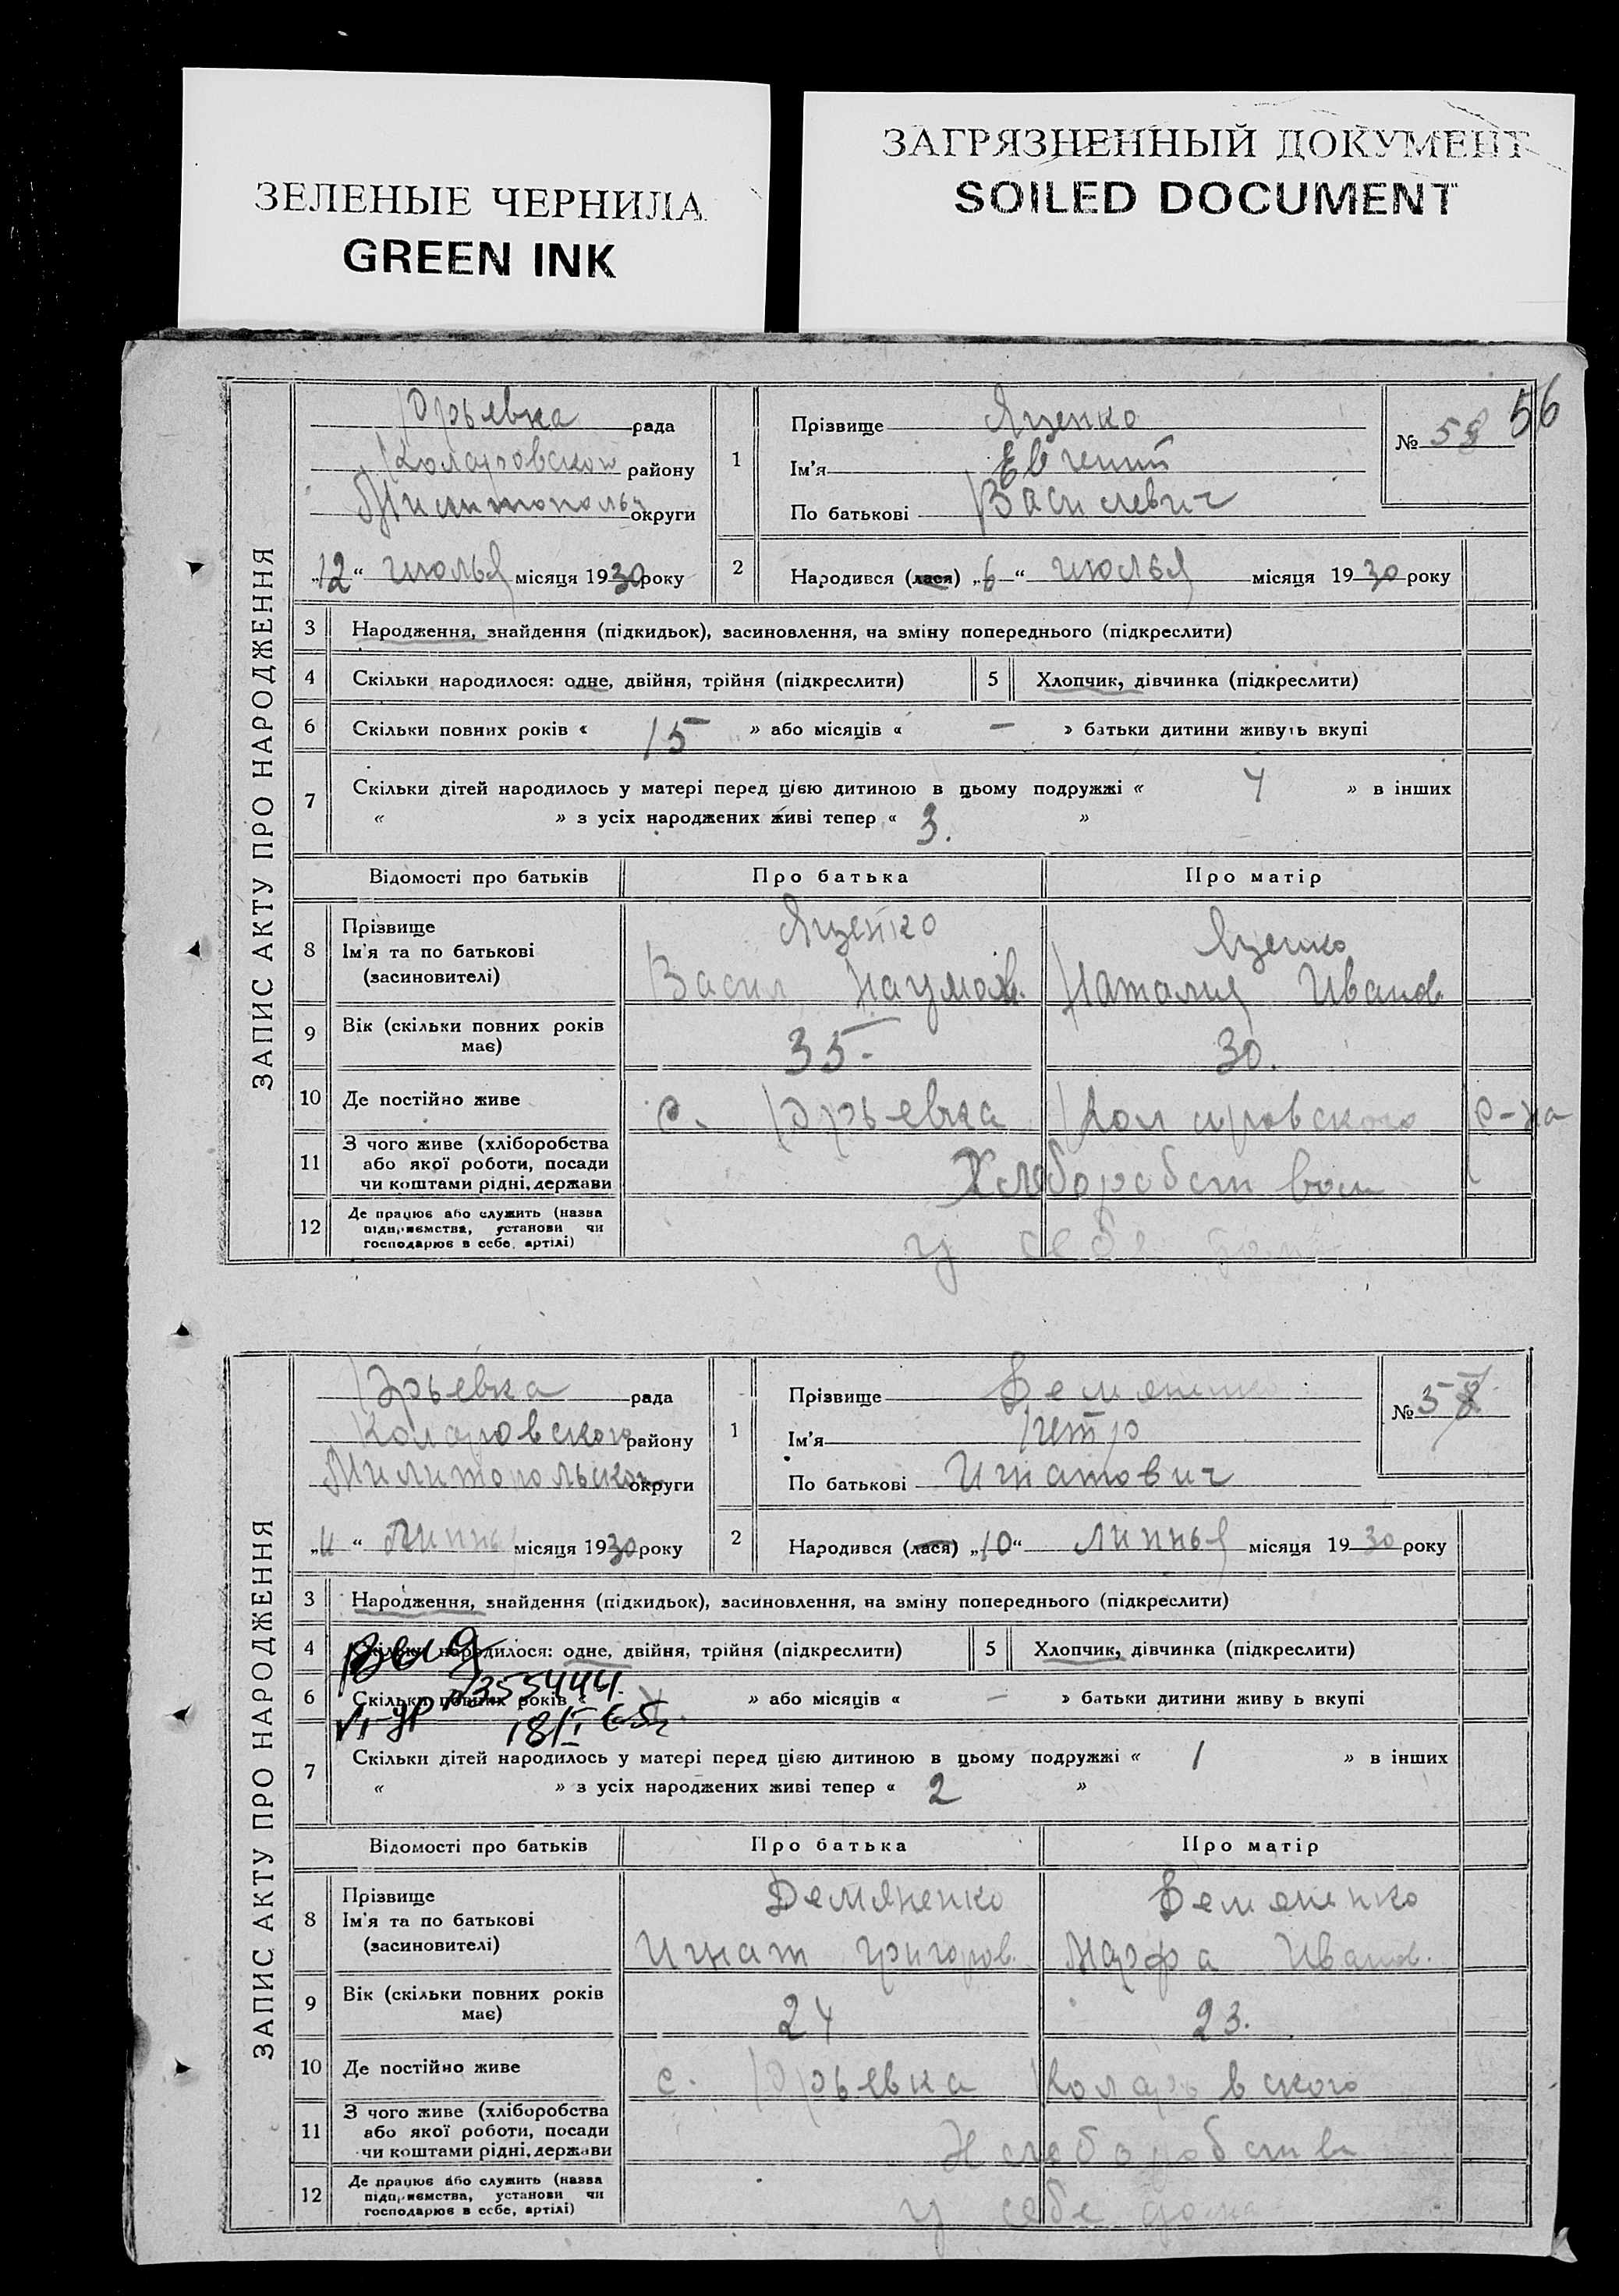 ЗЕЛЕНЫЕ ЧЕРНИЛА
GREEN INK
ЗАГРЯЗНЕННЫЙ ДОКУМЕНТ
SOILED DOCUMENT
56
ЗАПИС АКТУ ПРО НАРОДЖЕННЯ
Юрьевка рада
Коларовского району
округи
„12“ июлья місяця 1930 року
1
Прізвище Яценко
Ім'я Евгений
По батькові Василевич
№ 58
2
Народився (лася) „6“ июлья місяця 1930 року
3 Народження, знайдення (підкидьок), засиновлення, на зміну попереднього (підкреслити)
4 Скільки народилося: одне, двійня, трійня (підкреслити) 5 Хлопчик, дівчинка (підкреслити)
6 Скільки повних років « 15 » або місяців « — » батьки дитини живуть вкупі
7 Скільки дітей народилось у матері перед цією дитиною в цьому подружжі « 4 » в інших
« » з усіх народжених живі тепер « 3. »
Відомості про батьків Про батька Про матір
8 Прізвище
Ім'я та по батькові
(засиновителі)
Яценко
Васил Наумов.
Яценко
Наталия Иванов
9 Вік (скільки повних років
має)
35- 30.
10 Де постійно живе с. Юрьевка Коларовского р-на
11 З чого живе (хліборобства
або якої роботи, посади
чи коштами рідні, держави
Хлеборобством
12 Де працює або служить (назва
підприємства, установи чи
господарює в себе, артілі)
у себе
ЗАПИС АКТУ ПРО НАРОДЖЕННЯ
Юрьевка рада
Коларовского району
Милитопольского округи
„11“ Липня місяця 1930 року
1
Прізвище Демяненко
Ім'я Петр
По батькові Игнатович
№ 57
2
Народився (лася) „10“ липнья місяця 1930 року
3 Народження, знайдення (підкидьок), засиновлення, на зміну попереднього (підкреслити)
4 Скільки народилося: одне, двійня, трійня (підкреслити) 5 Хлопчик, дівчинка (підкреслити)
6 Скільки повних років « » або місяців « — » батьки дитини живу ь вкупі
Выд
№353444
18/I 65г.
7 Скільки дітей народилось у матері перед цією дитиною в цьому подружжі « 1 » в інших
« » з усіх народжених живі тепер « 2 »
Відомості про батьків Про батька Про матір
8 Прізвище
Ім'я та по батькові
(засиновителі)
Демяненко
Игнат Григоров.
Демяненко
Марфа Иванов.
9 Вік (скільки повних років
має)
24 23.
10 Де постійно живе с. Юрьевка Коларовского
11 З чого живе (хліборобства
або якої роботи, посади
чи коштами рідні, держави
12 Де працює або служить (назва
підприємства, установи чи
господарює в себе, артілі)
у себе дома